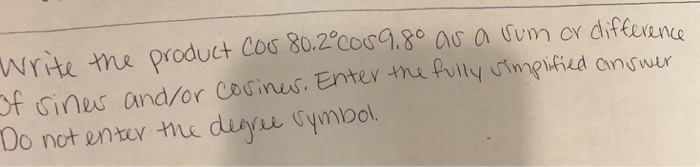 Write the product Cos 80.2°cos9.8° as a sum or difference
of sines and/or cosines. Enter the fully simplified answer
Do not enter the degree symbol.